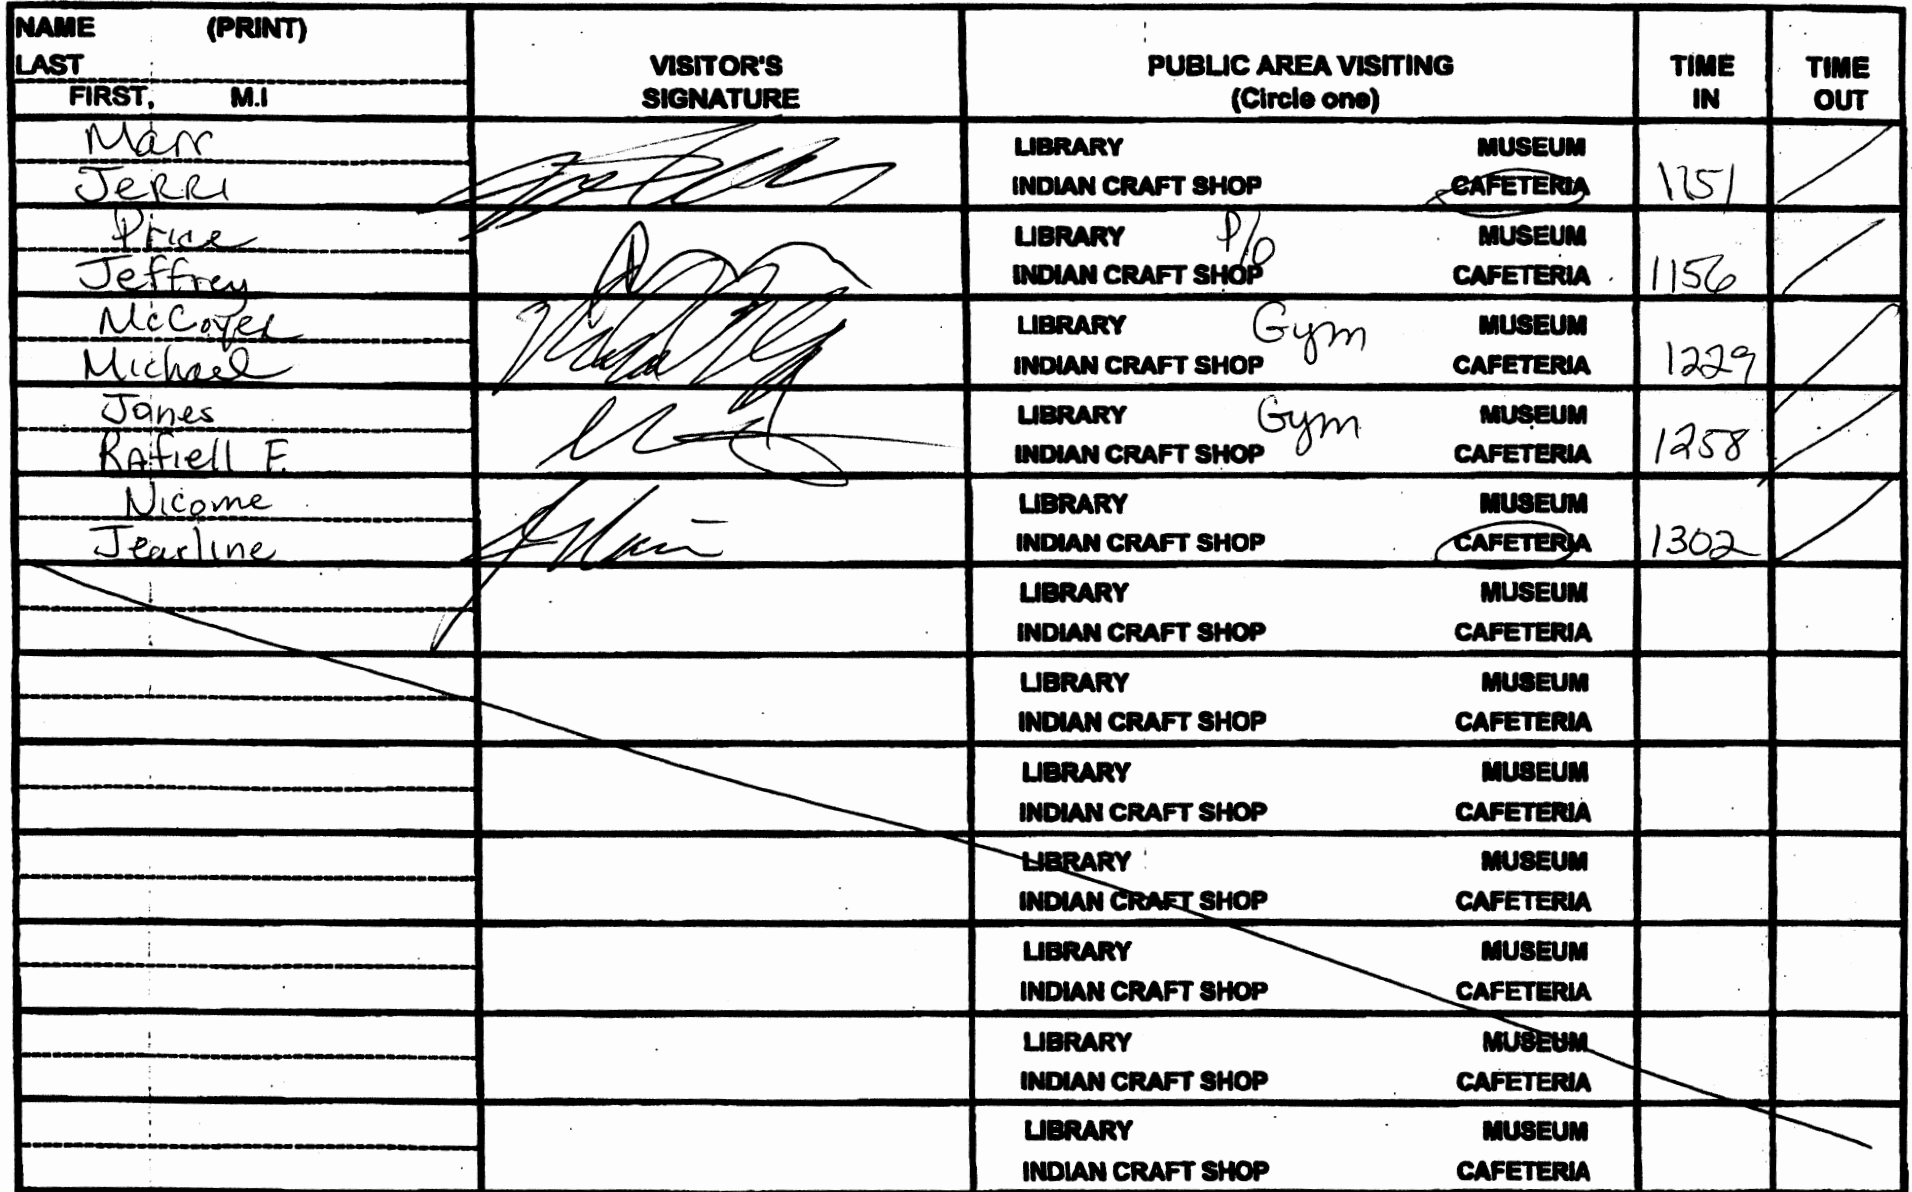 NAME (PRINT)
LAST
FIRST, M.I
VISITOR'S
SIGNATURE
PUBLIC AREA VISITING
(Circle one)
TIME
IN
TIME
OUT
Marr
LIBRARY MUSEUM
Jerri
INDIAN CRAFT SHOP CAFETERIA
Price
LIBRARY P/O MUSEUM
Jeffrey
INDIAN CRAFT SHOP CAFETERIA 1156
LIBRARY Gym MUSEUM
Michael
INDIAN CRAFT SHOP CAFETERIA 1229
Jones
LIBRARY Gym MUSEUM
Rafiell F.
INDIAN CRAFT SHOP CAFETERIA 1258
Nicome
LIBRARY MUSEUM
Jearline
INDIAN CRAFT SHOP CAFETERIA 1302
LIBRARY MUSEUM
INDIAN CRAFT SHOP CAFETERIA
LIBRARY MUSEUM
INDIAN CRAFT SHOP CAFETERIA
LIBRARY MUSEUM
INDIAN CRAFT SHOP CAFETERIA
LIBRARY MUSEUM
INDIAN CRAFT SHOP CAFETERIA
LIBRARY MUSEUM
INDIAN CRAFT SHOP CAFETERIA
LIBRARY MUSEUM
INDIAN CRAFT SHOP CAFETERIA
LIBRARY MUSEUM
INDIAN CRAFT SHOP CAFETERIA